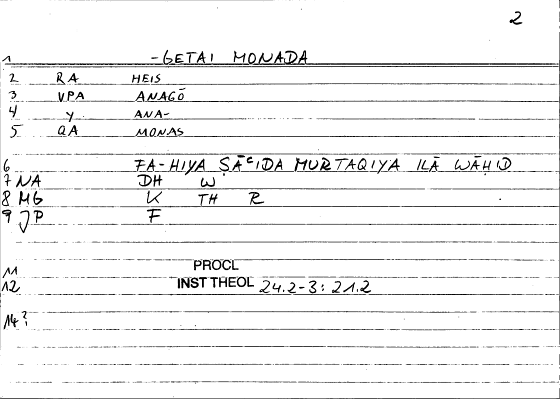 2
1 -GETAI MONADA
2 RA HEIS
3 VPA ANAGŌ
4 y ANA-
5 QA MONAS
6 FA-HIYA ṢĀʿIDA MURTAQIYA ILĀ WĀḤID
7 NA DH W
8 MG K TH R
9 JP F
11 PROCL
12 INST THEOL 24.2-3: 21.2
14?